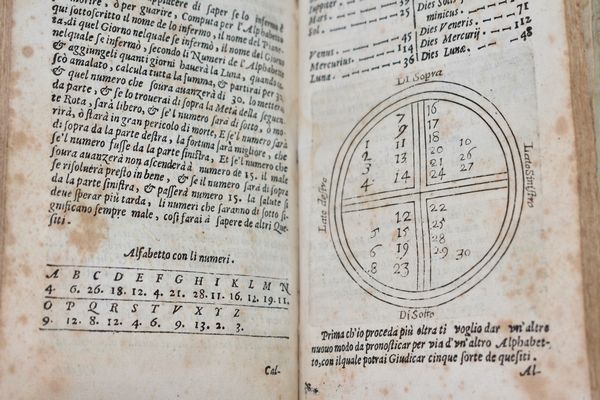 piacere di saper se lo infermo è
morire, ò per guarire, Computa per l'Alphabetto
qui sottoscritto il nome de lo infermo, il nome del Piane-
ta, di quel Giorno nelquale se infermò, il nome del Giorno
nelquale se infermò, secondo li Numeri de l'Alphabetto
& aggiungeli quanti giorni hauerà la Luna, quando fu
scò amalato, calcula tutta la summa, & partirai per 30.
& quel numero che soura auanzerà di 30. lo metterai
da parte, & se lo trouerai di sopra la Metà della seguen-
te Rota, sarà libero, & se'l numero sarà di sotto, ò mo-
rirà, ò starà in gran pericolo di morte, E se'l numero sarà
di sopra da la parte destra, la fortuna sarà migliore, che
se'l numero fusse da la parte sinistra, Et se'l numero che
soura auanzerà non ascenderà al numero de 15. il male
se risoluerà presto in bene, & se il numero sarà di sopra
da la parte sinistra, & passerà numero 15. la salute si
deue sperar più tarda, li numeri che saranno di sotto si-
gnificano sempre male, cosi farai à sapere de altri Que-
siti.
Alfabetto con li numeri.
A B C D E F G H I K L M N
4. 6. 26. 18. 12. 4. 21. 28. 11. 16. 12. 19. 11.
O P Q R S T V X Y Z
9. 12. 8. 12. 4. 6. 9. 13. 2. 3.
Cal-
Iuppiter 
Mars.
Sol.
Venus. 45
Mercurius. 114
Luna. 36
Dies
Dies Solis
minicus. 
Dies Veneris. 112
Dies Mercurij 
Dies Lunæ. 48
Di Sopra
7 16
9 17
1 11 18
2 13 20 10
3 21 26
4 14 24 27
Lato destro
Lato Sinistro
12 22
5 15 25
6 19 28
8 23 29 30
Di Sotto
Prima ch'io proceda più oltra ti voglio dar vn'altro
nuouo modo da pronosticar per via d'vn'altro Alphabet-
to, con ilquale potrai Giudicar cinque sorte de quesiti.
Al-